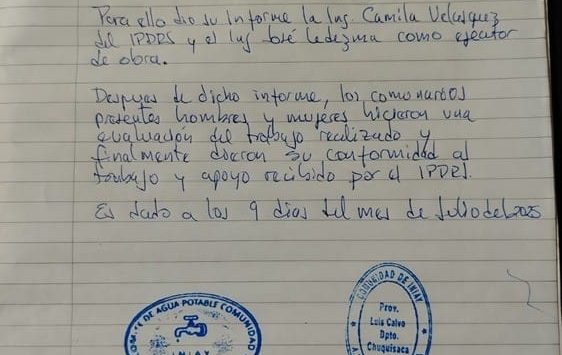 Para ello dio su informe la Ing. Camila Velasquez
del IPDRS y el Ing José Ledezma como ejecutor
de obra.
Despues de dicho informe, los comunarios
presentes hombres y mujeres hicieron una
evaluación del trabajo realizado y
finalmente dieron su conformidad al
trabajo y apoyo recibido por el IPDRS.
Es dado a los 9 dias del mes de Julio del 2025
DE AGUA POTABLE COMUNIDAD
INIAY
COMUNIDAD DE INIAY
Prov.
Luis Calvo
Dpto.
Chuquisaca